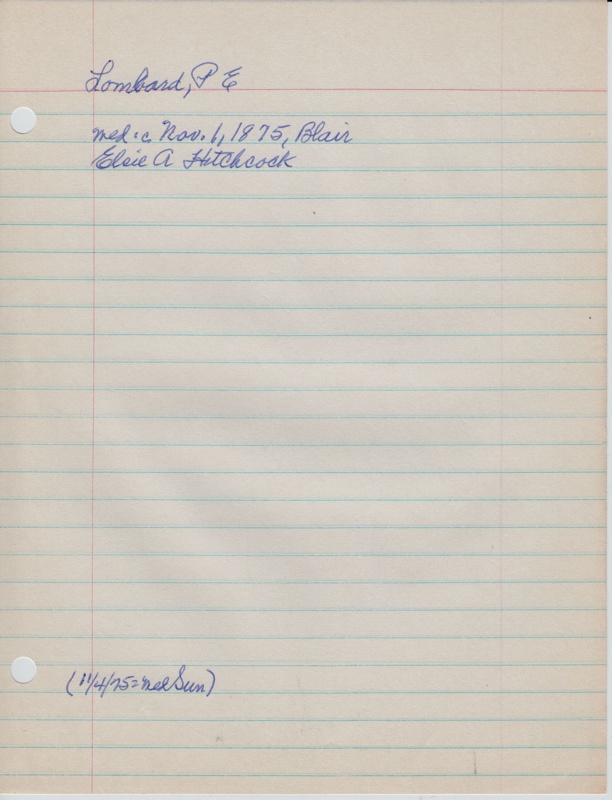 Lombard, P E
med:c. Nov. 1, 1875, Blair
Elsie A Hitchcock
(11/4/75=med Sun)